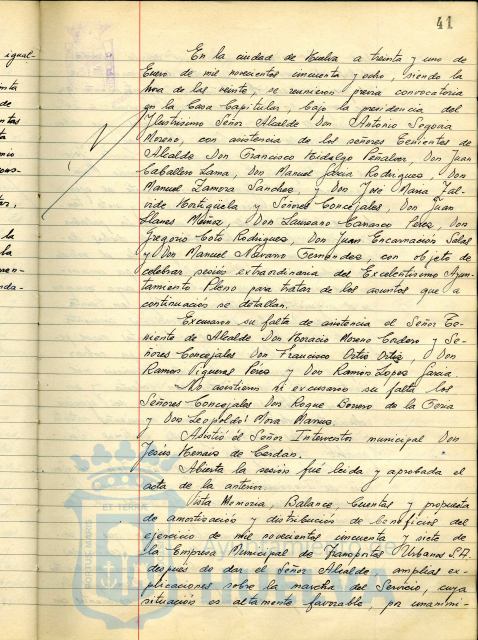 41
En la ciudad de Huelva a treinta y uno de
Enero de mil novecientos cincuenta y ocho, siendo la
hora de las veinte, se reunieron previa convocatoria
en la Casa Capitular, bajo la presidencia del
Ylustrisimo Señor Alcalde Don Antonio Segovia
Moreno, con asistencia de los señores Tenientes de
Alcalde Don Francisco Hidalgo Peñalver, Don Juan
Caballero Lama, Don Manuel Garcia Rodriguez, Don
Manuel Zamora Sanchez, y Don José Maria Zal-
vide Hortigüela y Señores Concejales, Don Juan
Llanes Muñoz, Don Laureano Carrasco Perez, Don
Gregorio Coto Rodriguez, Don Juan Encarnación Salas
y Don Manuel Navarro Fernandez, con objeto de
celebrar sesión extraordinaria del Excelentisimo Ayun-
tamiento Pleno para tratar de los asuntos que a
continuación se detallan.
Excusaron su falta de asistencia el Señor Te-
niente de Alcalde Don Horacio Moreno Cordero y Se-
ñores Concejales Don Francisco Ortiz Ortiz, Don
Ramon Figueroa Perez y Don Ramón Lopez Garcia.
No asistieron ni excusaron su falta los
Señores Concejales Don Roque Borrero de la Feria
y Don Leopoldo Mora
Asistió el Señor Interventor municipal Don
Jesús Henais de Cerdan.
Abierta la sesión fué leida y aprobada el
acta de la anterior.
Vista Memoria, Balance, Cuentas y propuesta
de amortización y distribución de beneficios del
ejercicio de mil novecientos cincuenta y siete de
la Empresa Municipal de Transportes Urbanos S.A.
después de dar el Señor Alcalde amplias ex-
plicaciones sobre la marcha del Servicio, cuya
situación es altamente favorable, por unanimi-